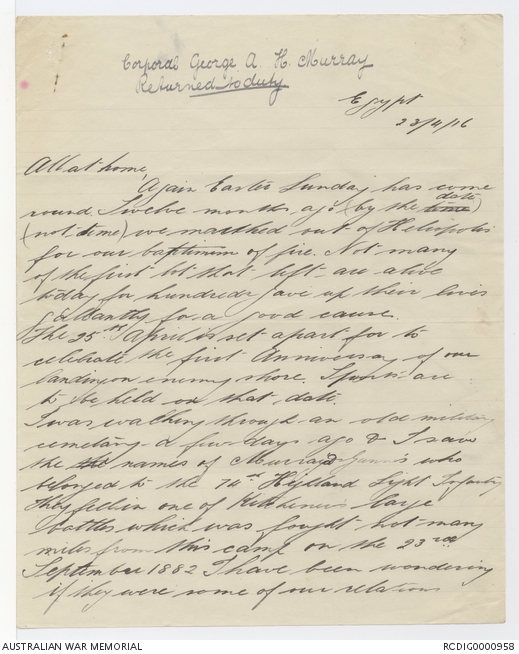 Corporal George A. H. Murray
Returned to duty
Egypt
23/4/16
All at home,
Again Easter Sunday has come
round. Twelve months ago (by the time date)
(not time) we marched out of Heliopolis
for our baptimim of fire. Not many
of the first lot that left are alive
today for hundreds gave up their lives
gallantly for a good cause.
The 25th April is set apart for to
celebrate the first Anniversary of our
landing on enemy shore. Sports are
to be held on that date.
I was walking through an old military
cemetary a few days ago & I saw
the names of Murray & who
belonged to the 74th Highland Light Infantry
They fell in one of Kitcheners large
battles which was fought not many
miles from this camp on the 23rd
September 1882 I have been wondering
if they were some of our relations
AUSTRALIAN WAR MEMORIAL
RCDIG0000958